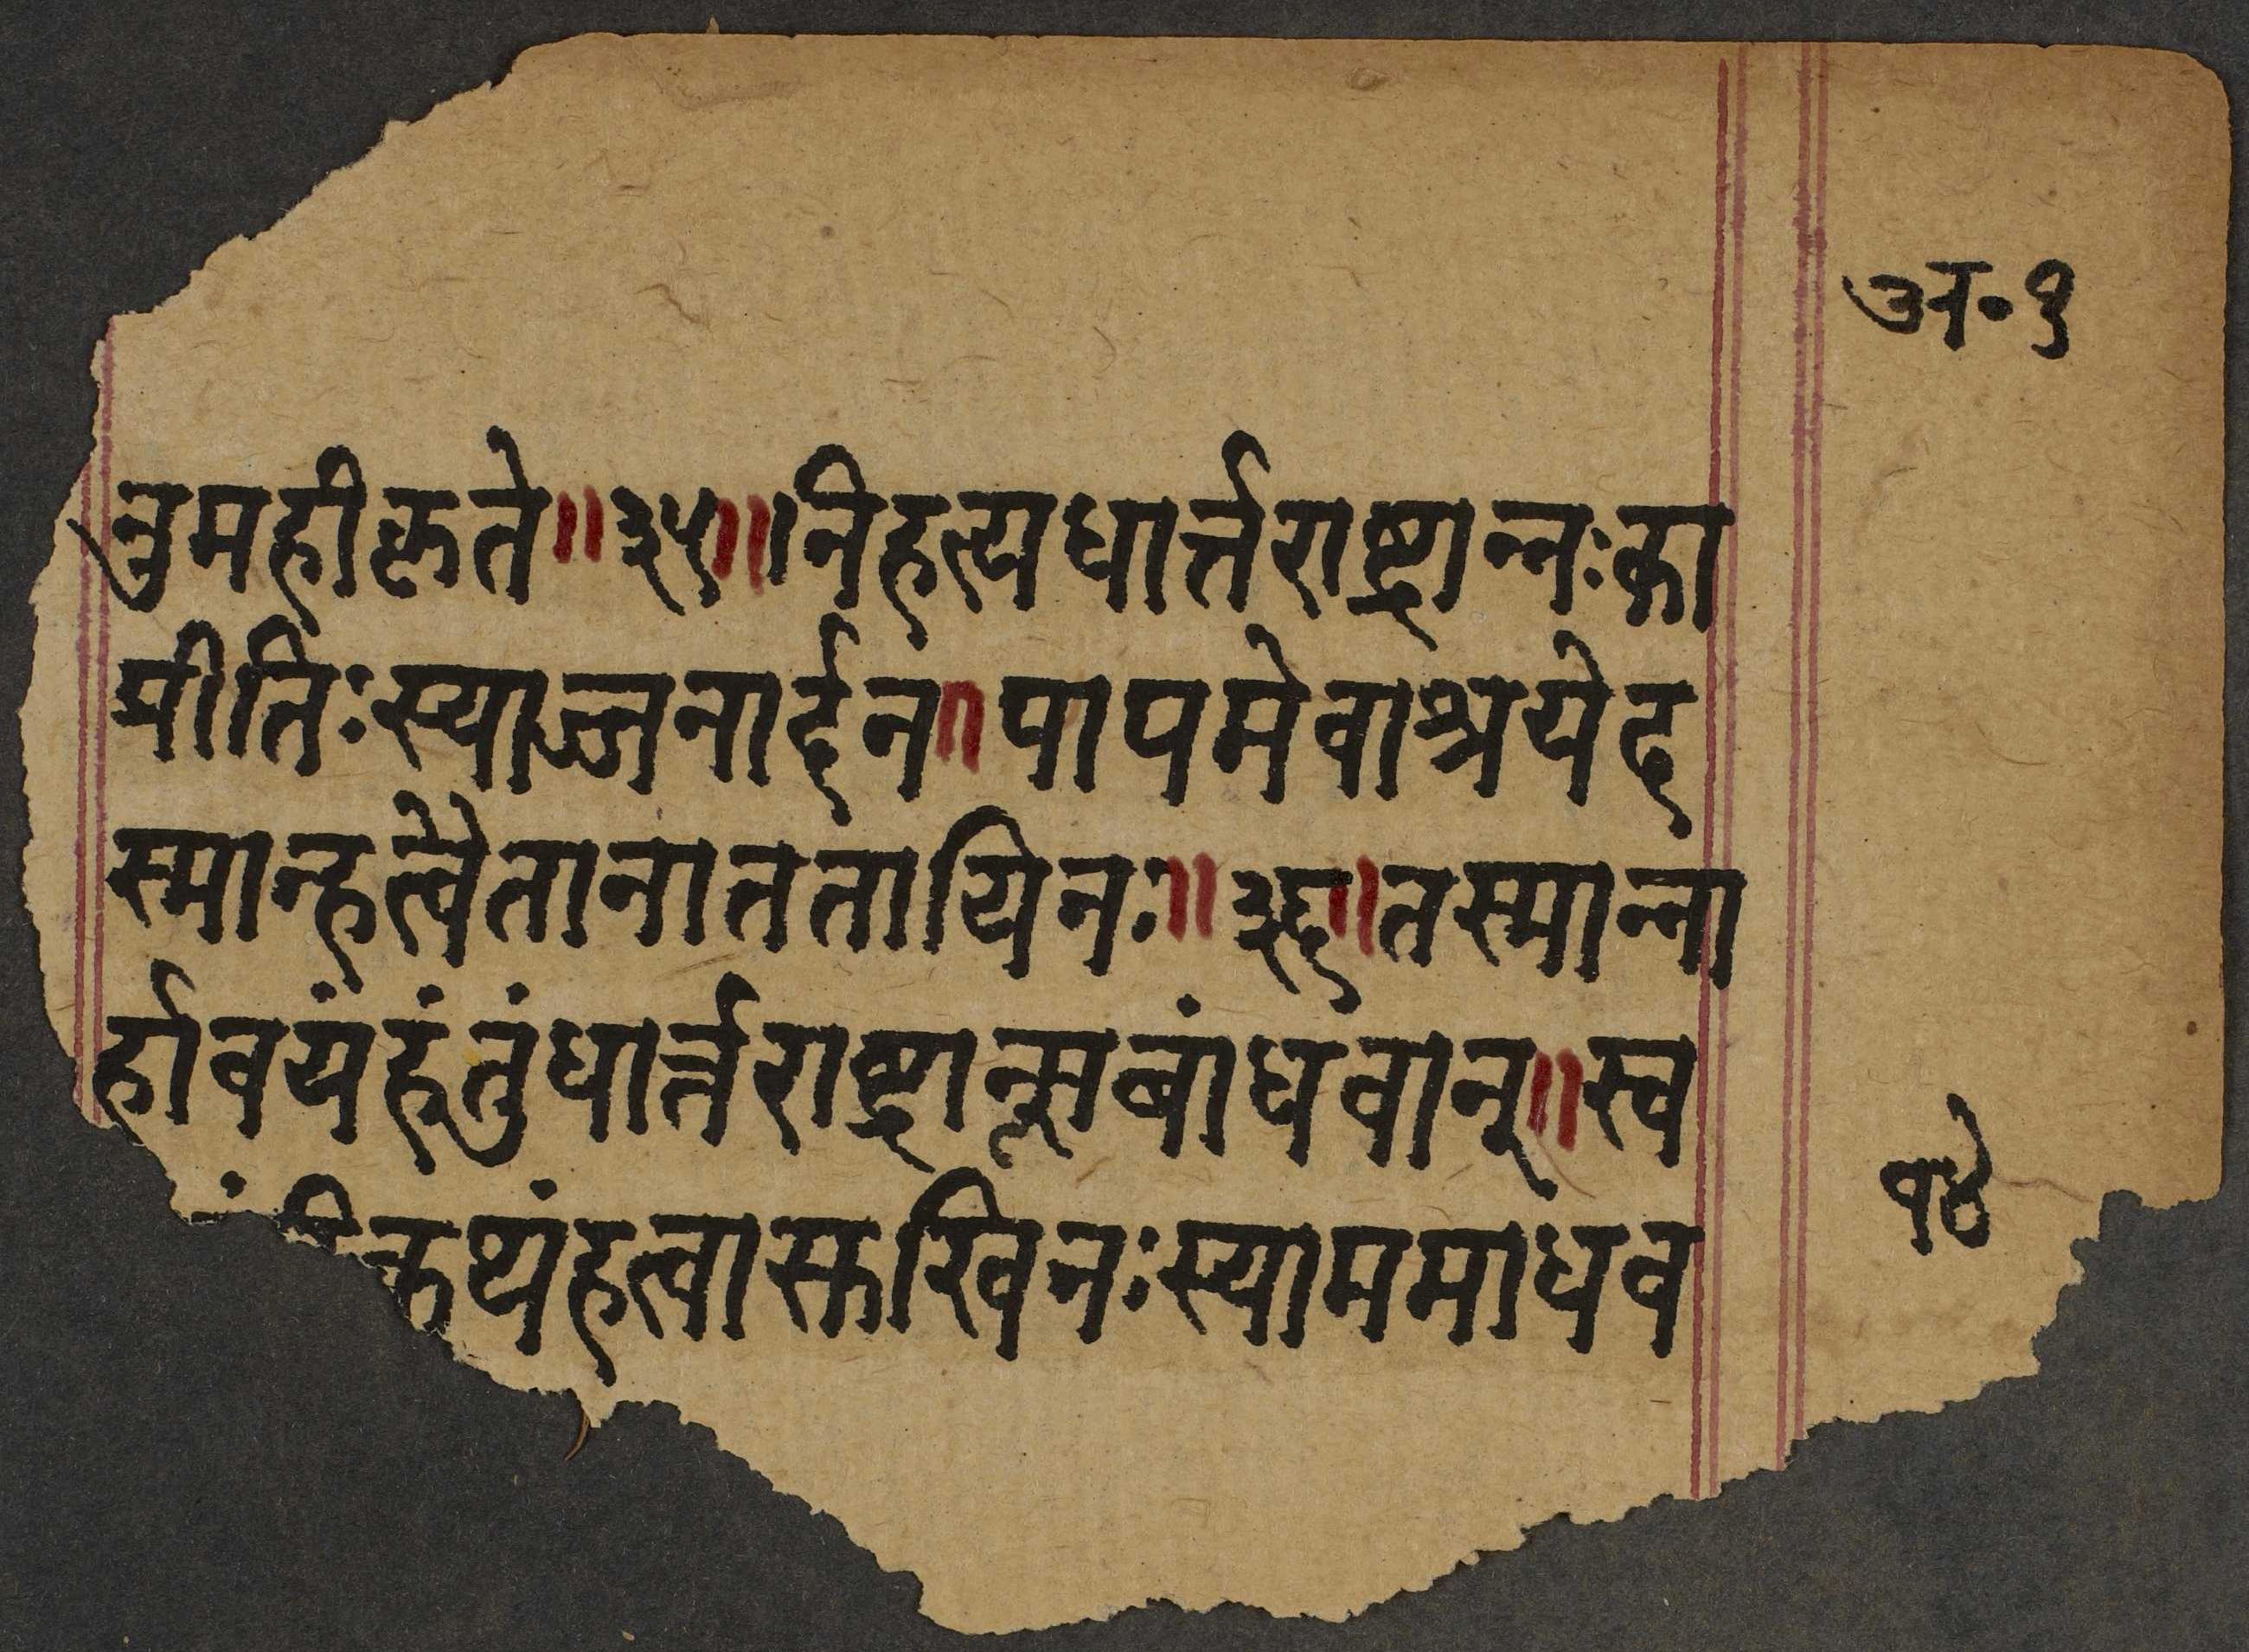 अ॰१
नु महीकृते ॥ ३५ ॥ निहत्य धार्त्तराष्ट्रान्नः का
प्रीतिः स्याज्जनार्दन ॥ पापमेवाश्रयेद
स्मान्हत्वैतानाततायिनः ॥ ३६ ॥ तस्मान्ना
र्हा वयं हंतुं धार्त्तराष्ट्रान्सबांधवान् ॥ स्व
कथं हत्वा सुखिनः स्याम माधव